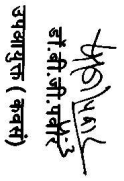 डॉ.बी.जी.पवार
उपआयुक्त ( कवसं )